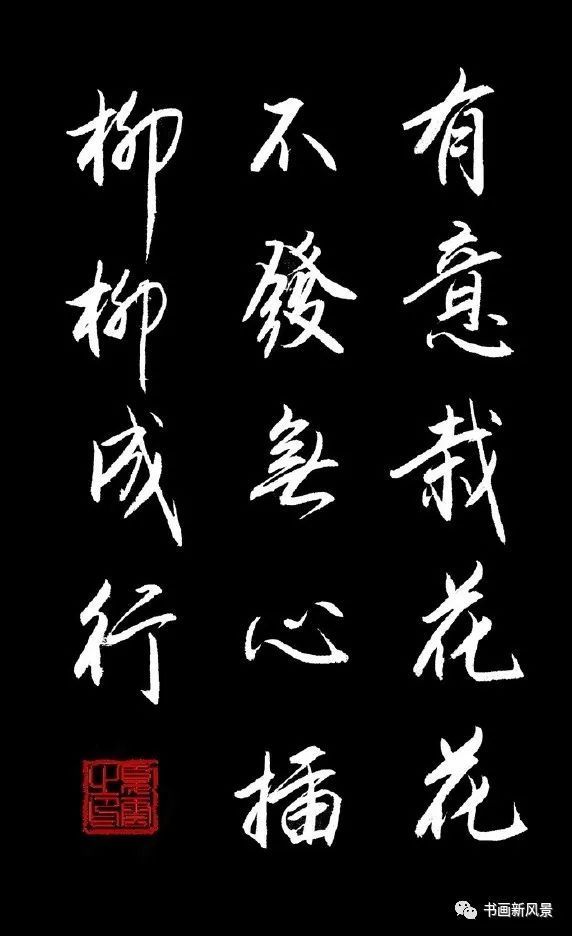 有意栽花花
不發無心插
柳柳成行
书画新风景